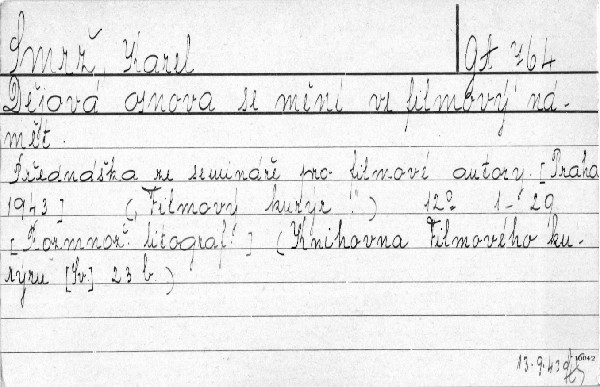 Smrž, Karel
QA 764
Dějová osnova se mění ve filmový ná-
mět.
Přednáška ze semináře pro filmové autory. [Praha
1943] („Filmový kurýr“) 12° 1-29
[Rozmnož. litograf.] (Knihovna Filmového ku-
rýru [Sv.] 23 b.)
13.9.43